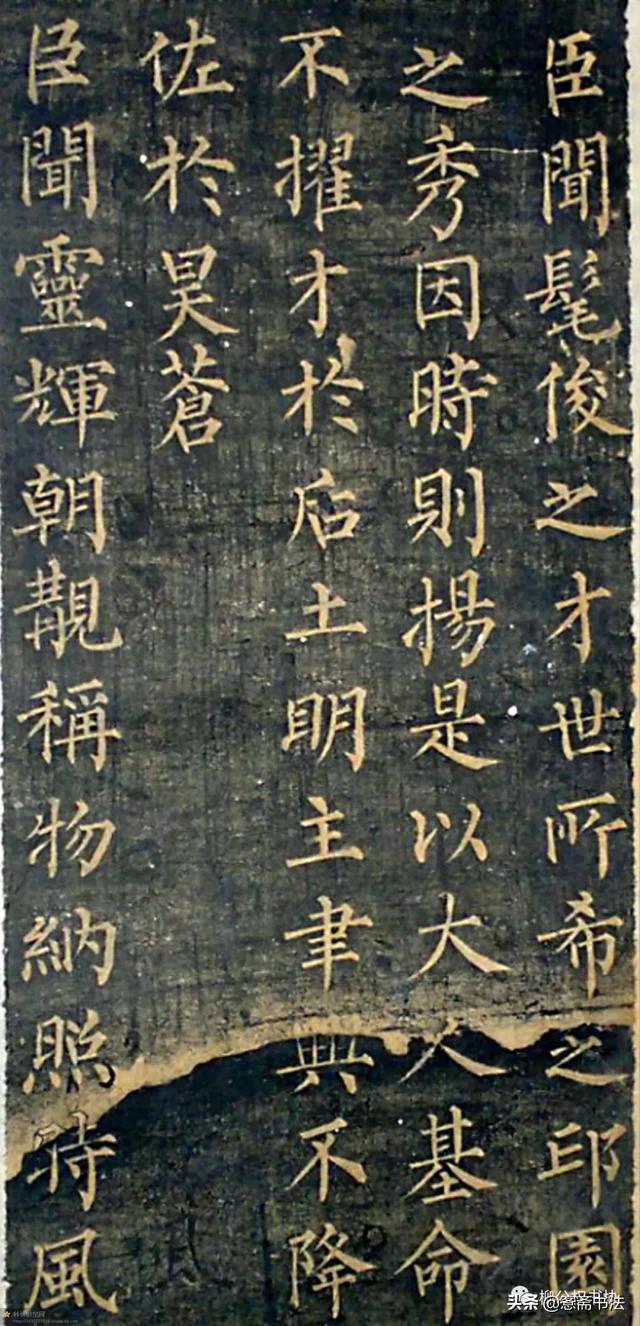 臣聞髦俊之才世所希乏邱園
之秀因時則揚是以大人基命
不擢才於后土明主聿興不降
佐於昊蒼
臣聞靈輝朝覯稱物納照時風
头条 @愙斋书法